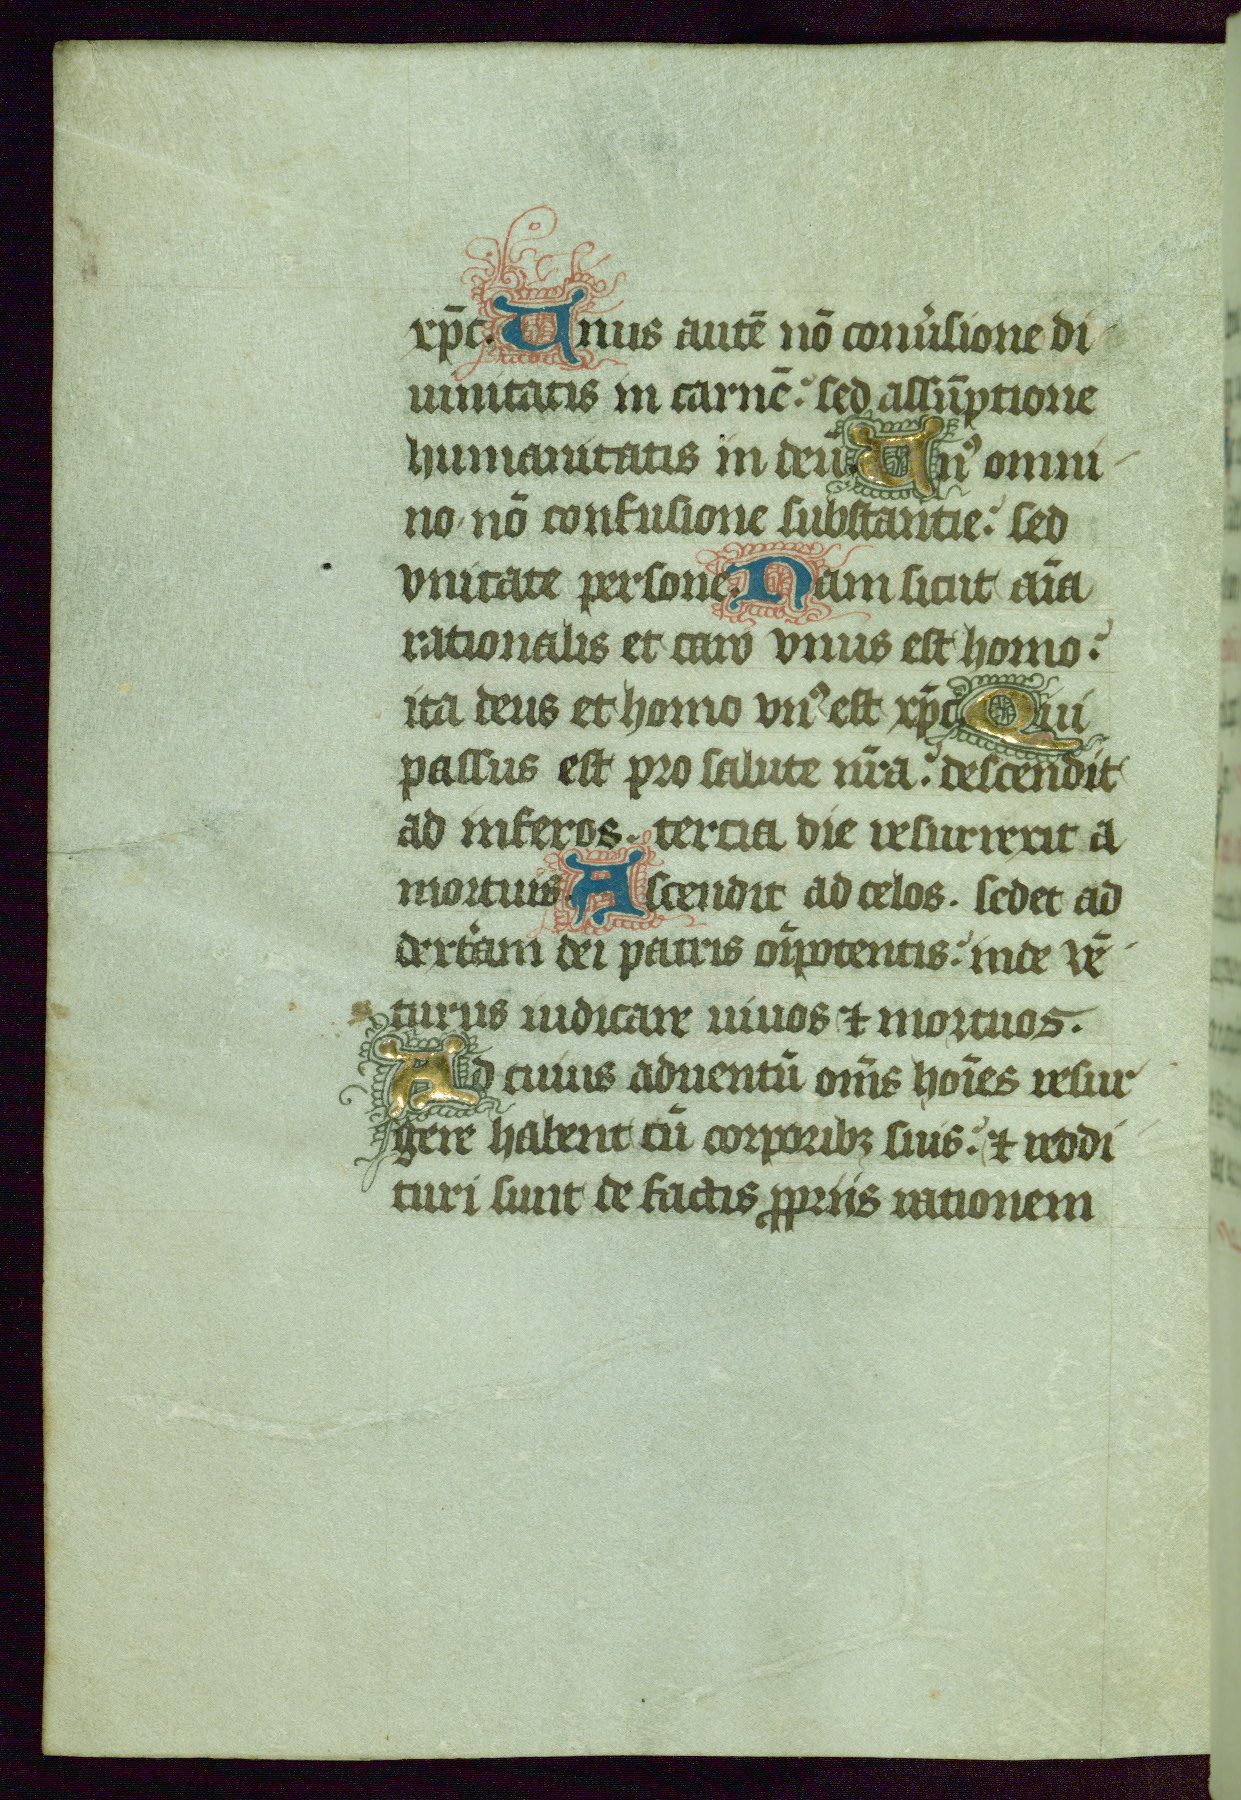 xp̄c. Unus autē nō conūsione di
uinitatis in carnē: sed assūptione
humanitatis in deū. Unꝰ omni
no nō confusione substantie: sed
vnitate persone. Nam sicut aīa
rationalis et caro vnus est homo:
ita deus et homo vnꝰ est xp̄c Qui
passus est pro salute nr̄a: descendit
ad inferos. tercia die resurrexit a
mortuis. Ascendit ad celos. sedet ad
dextẽam dei patris oīpotentis: inde vē
turus iudicare uiuos ⁊ mortuos.
Ad cuius aduentū om̄s hoīes resur
gere habent cū corporibꝫ suis: ⁊ reddi
turi sunt de factis ꝓpriis rationem